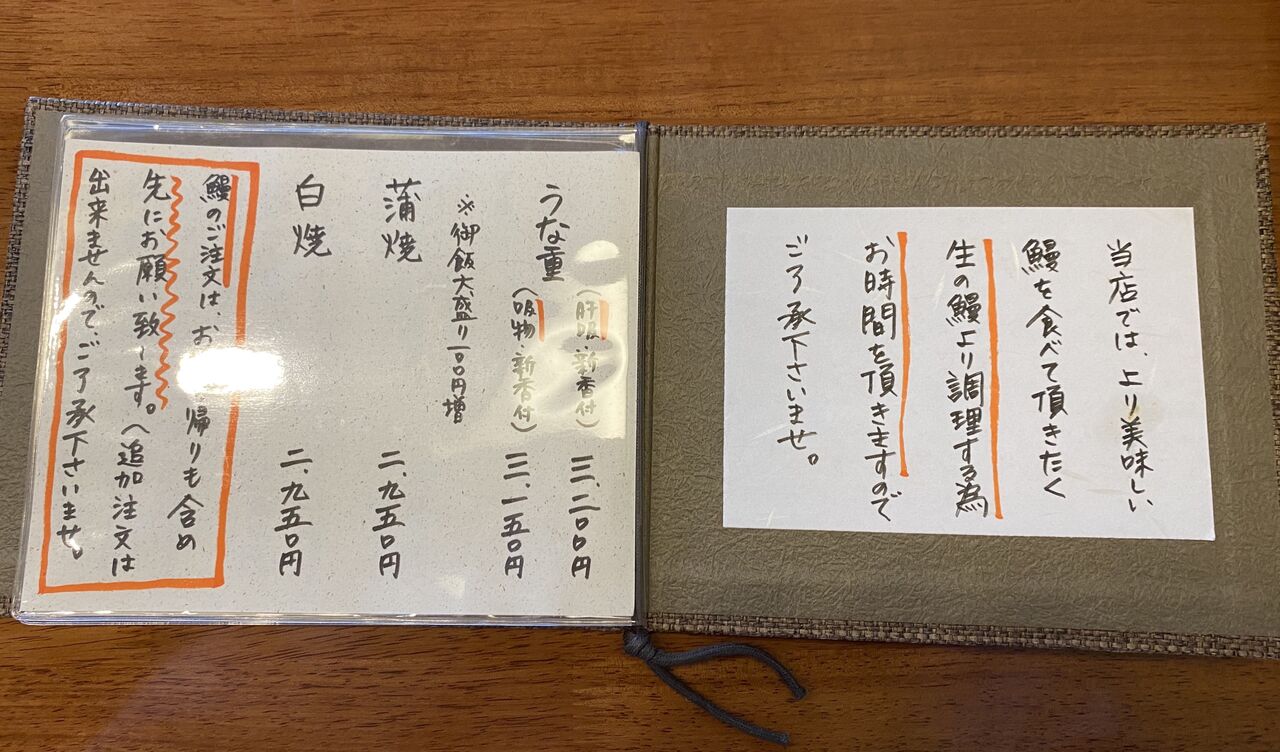 当店では、より美味しい
鰻を食べて頂きたく
生の鰻より調理する為
お時間を頂きますので
ご了承下さいませ。
うな重(肝吸・新香付) 三、二〇〇円
(吸物・新香付) 三、一五〇円
※御飯大盛り一〇〇円増
蒲焼 二、九五〇円
白焼 二、九五〇円
鰻のご注文は、お 帰りも含め
先にお願い致します。へ追加注文は
出来ませんのでご了承下さいませ。